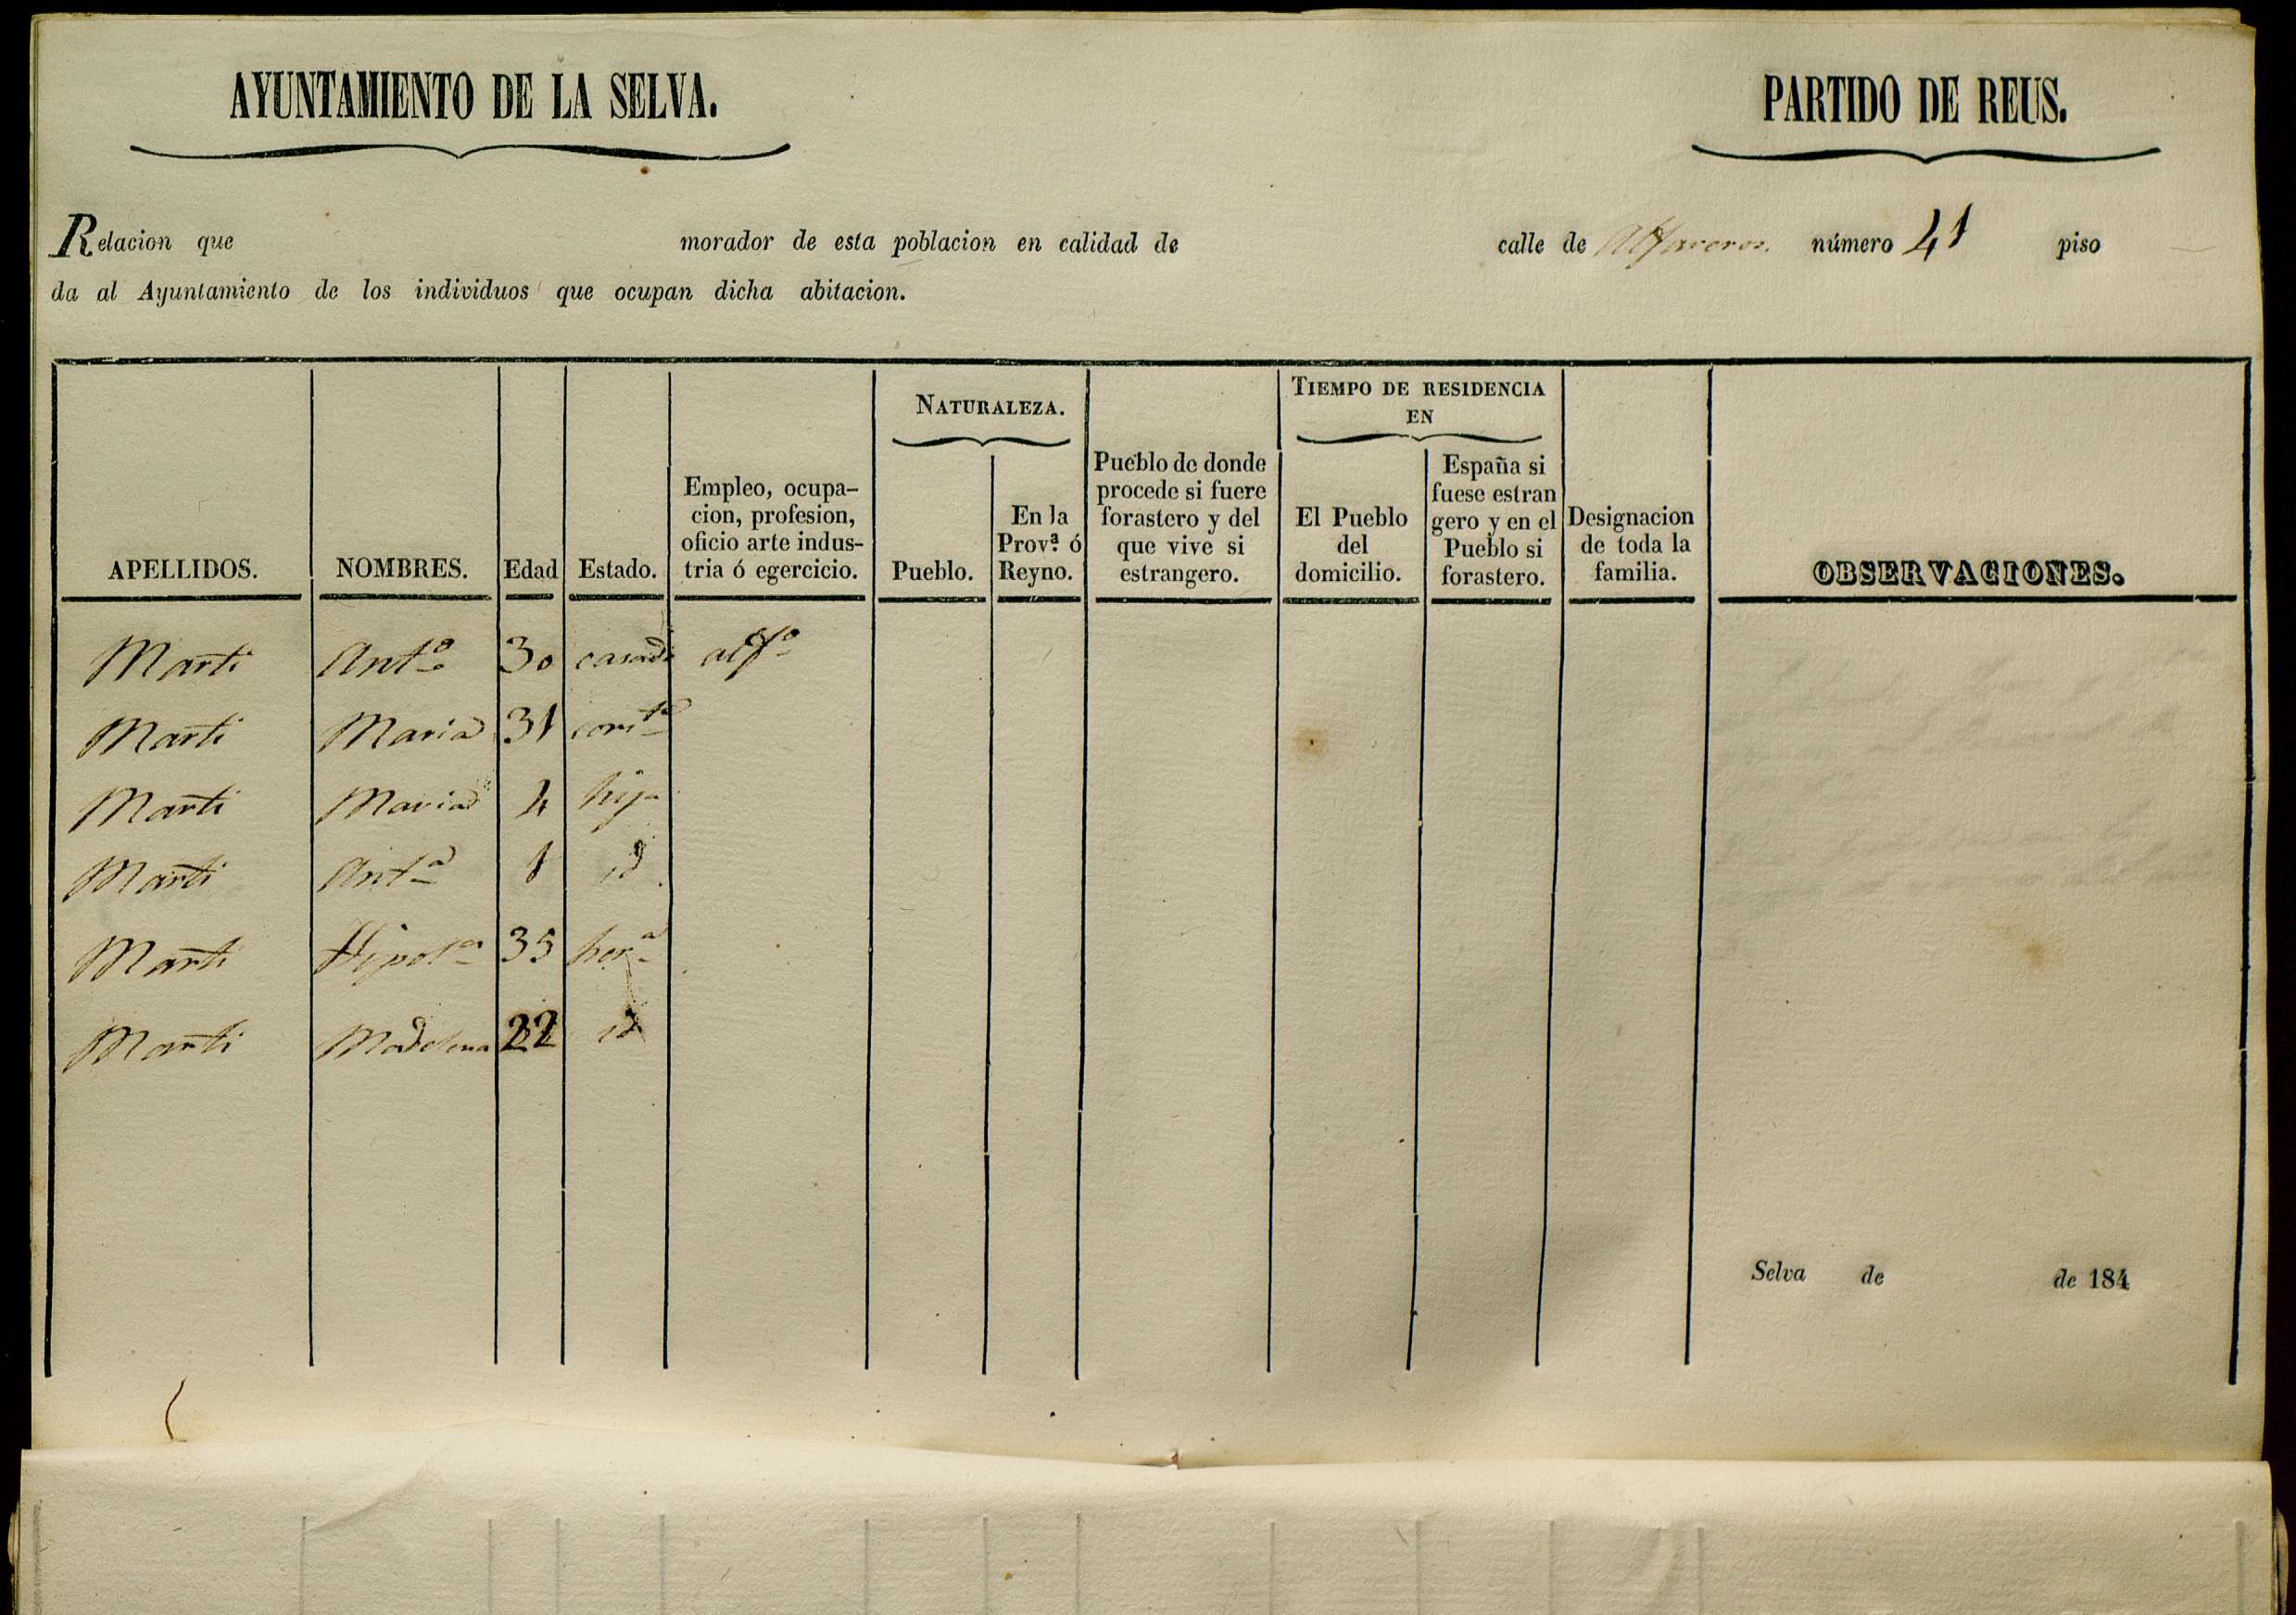 AYUNTAMIENTO DE LA SELVA.
PARTIDO DE REUS.
Relacion que morador de esta poblacion en calidad de calle de Alfareros. número 41 piso
da al Ayuntamiento de los individuos que ocupan dicha abitacion.
APELLIDOS.
NOMBRES.
Edad
Estado.
Empleo, ocupa-
cion, profesion,
oficio arte indus-
tria ó egercicio.
NATURALEZA.
Pueblo.
En la
Prov.ª ó
Reyno.
Pueblo de donde
procede si fuere
forastero y del
que vive si
estrangero.
TIEMPO DE RESIDENCIA
EN
El Pueblo
del
domicilio.
España si
fuese estran
gero y en el
Pueblo si
forastero.
Designacion
de toda la
familia.
OBSERVACIONES.
Marti Ant.º 30 casado alf.º
Marti Maria 31 cons.te
Marti Maria 4 hija
Marti Ant.ª 1 id
Marti Hipol.ª 35 her.ª
Marti Madelena 22 id
Selva de de 184